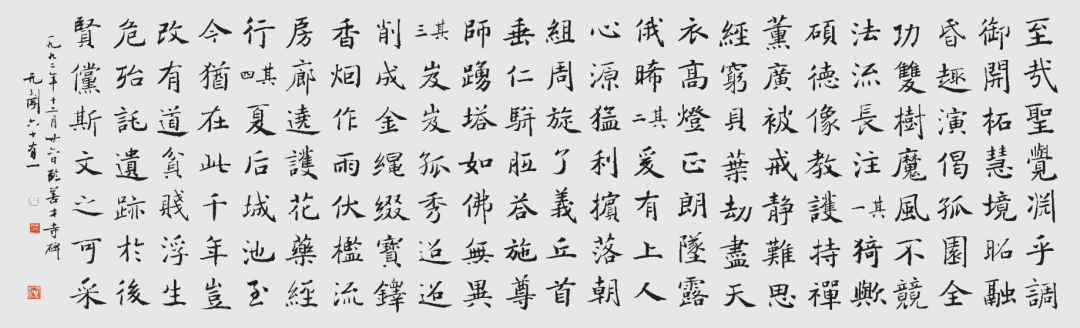 至哉聖覺淵乎調
御開柘慧境昭融
昏趣演偈孤園全
功雙樹魔風不競
法流長注其一猗歟
碩德像教護持禪
薰廣被戒静難思
經窮貝葉劫盡天
衣高燈正朗墜露
俄晞其二爰有上人
心源猛利擯落朝
組周旋了義丘首
垂仁駢胝荅施尊
師踴塔如佛無異
其三岌岌孤秀迢迢
削成金繩綴寶鐸
香炯作雨伏檻流
房廊遶護花藥經
行其四夏后城池至
今猶在此千年豈
改有道貧賤浮生
危殆託遺跡於後
賢儻斯文之可采
一九九二年十二月廿六日臨善才寺碑
六十有一